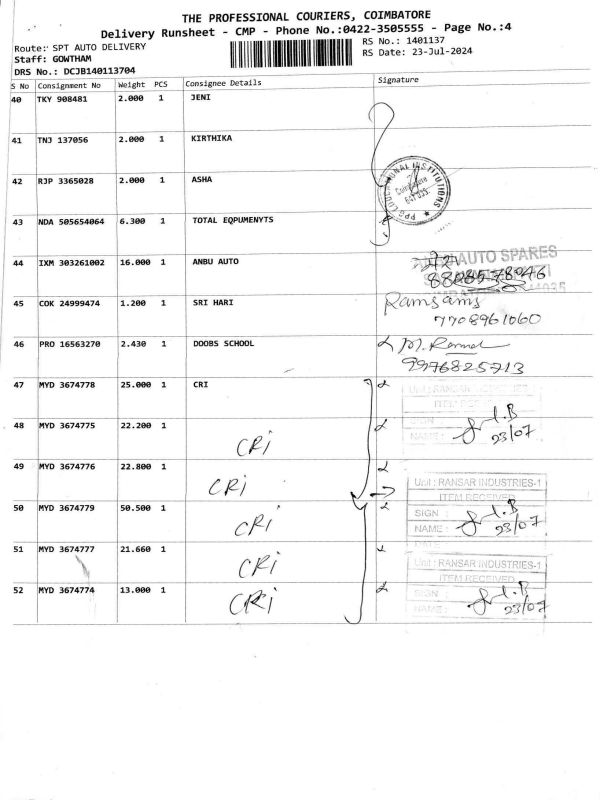 THE PROFESSIONAL COURIERS, COIMBATORE
Delivery Runsheet - CMP - Phone No.:0422-3505555 - Page No.:4
Route: SPT AUTO DELIVERY
Staff: GOWTHAM
DRS No.: DCJB140113704
RS No.: 1401137
RS Date: 23-Jul-2024
S No Consignment No Weight PCS Consignee Details Signature
40 TKY 908481 2.000 1 JENI
41 TNJ 137056 2.000 1 KIRTHIKA
42 RJP 3365028 2.000 1 ASHA
PPG EDUCATIONAL INSTITUTIONS
Coimbatore
43 NDA 505654064 6.300 1 TOTAL EQPUMENYTS
44 IXM 303261002 16.000 1 ANBU AUTO
AUTO SPARES
45 COK 24999474 1.200 1 SRI HARI
Ramsams
7708961060
46 PRO 16563270 2.430 1 DOOBS SCHOOL
9976825713
47 MYD 3674778 25.000 1 CRI
Unit : RANSAR INDUSTRIES
ITEM RECEIVED
SIGN
NAME:
23/07
48 MYD 3674775 22.200 1 CRi
49 MYD 3674776 22.800 1 CRi
Unit : RANSAR INDUSTRIES-1
ITEM RECEIVED
50 MYD 3674779 50.500 1 CRi
SIGN :
NAME :
23/07
DATE
51 MYD 3674777 21.660 1 CRi
Unit : RANSAR INDUSTRIES-1
ITEM RECEIVED
52 MYD 3674774 13.000 1 CRi
SIGN
NAME:
23/07